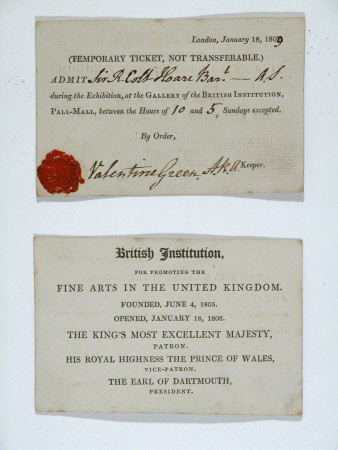 London, January 18, 1809
(TEMPORARY TICKET, NOT TRANSFERABLE.)
ADMIT Sir R. Colt Hoare Bart. — A.S.
during the Exhibition, at the GALLERY of the BRITISH INSTITUTION,
PALL-MALL, between the Hours of 10 and 5, Sundays excepted.
By Order,
Valentine Green, A.R.A. Keeper.
British Institution,
FOR PROMOTING THE
FINE ARTS IN THE UNITED KINGDOM.
FOUNDED, JUNE 4, 1805.
OPENED, JANUARY 18, 1806.
THE KING'S MOST EXCELLENT MAJESTY,
PATRON.
HIS ROYAL HIGHNESS THE PRINCE OF WALES,
VICE-PATRON.
THE EARL OF DARTMOUTH,
PRESIDENT.